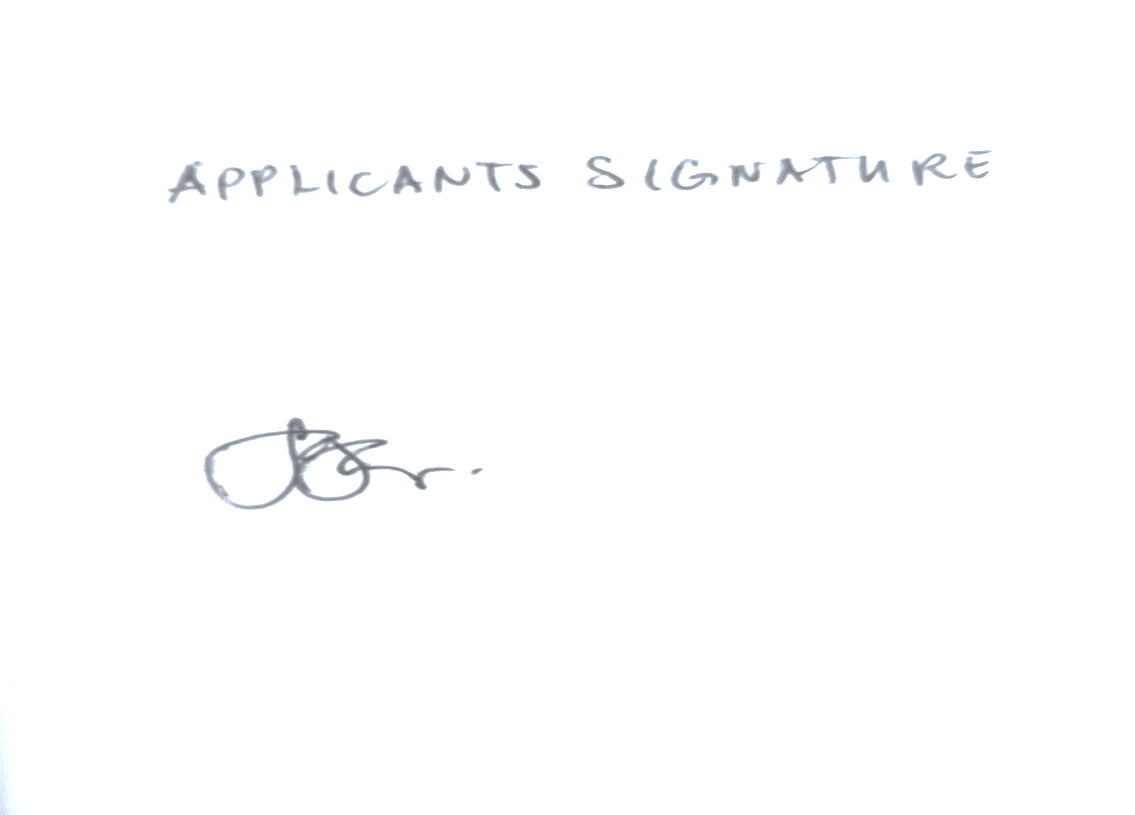 APPLICANTS SIGNATURE